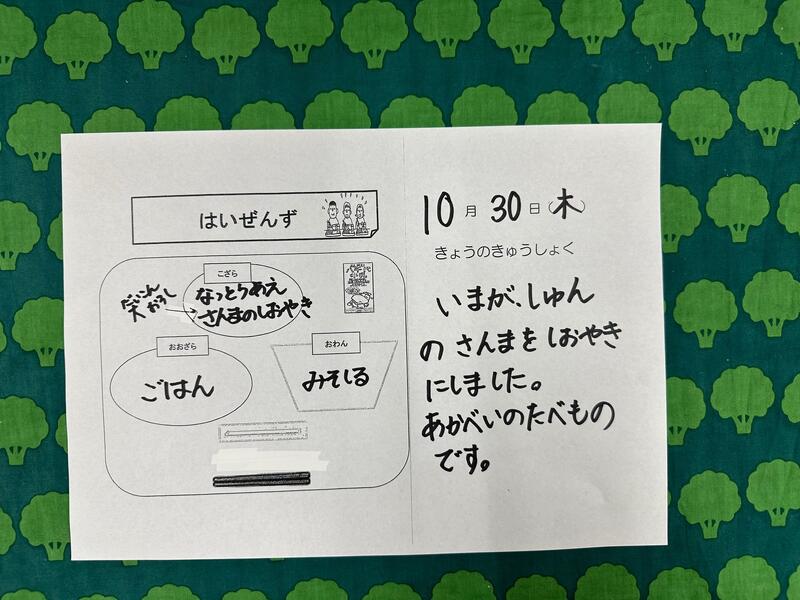 はいぜんず
こざら
なっとうあえ
さんまのしおやき
だいこん
おろし
おおざら
ごはん
おわん
みそしる
10月30日(木)
きょうのきゅうしょく
いまが、しゅん
の さんまを しおやき
にしました。
あかべいのたべもの
です。